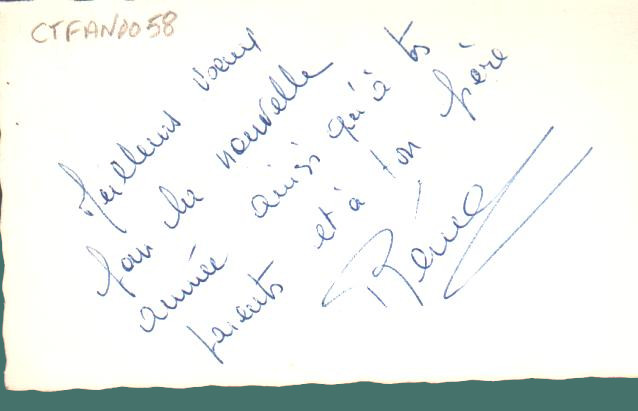 CTFANDO58
Meilleurs voeux
pour la nouvelle
année ainsi qu'à tes
parents et à ton frère